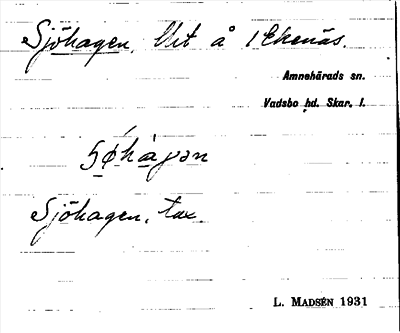 Sjöhagen, Urt å 1 Ekenäs.
Amnehärads sn.
Vadsbo hd. Skar. l.
Sjöhagen, tax.
L. MADSÉN 1931